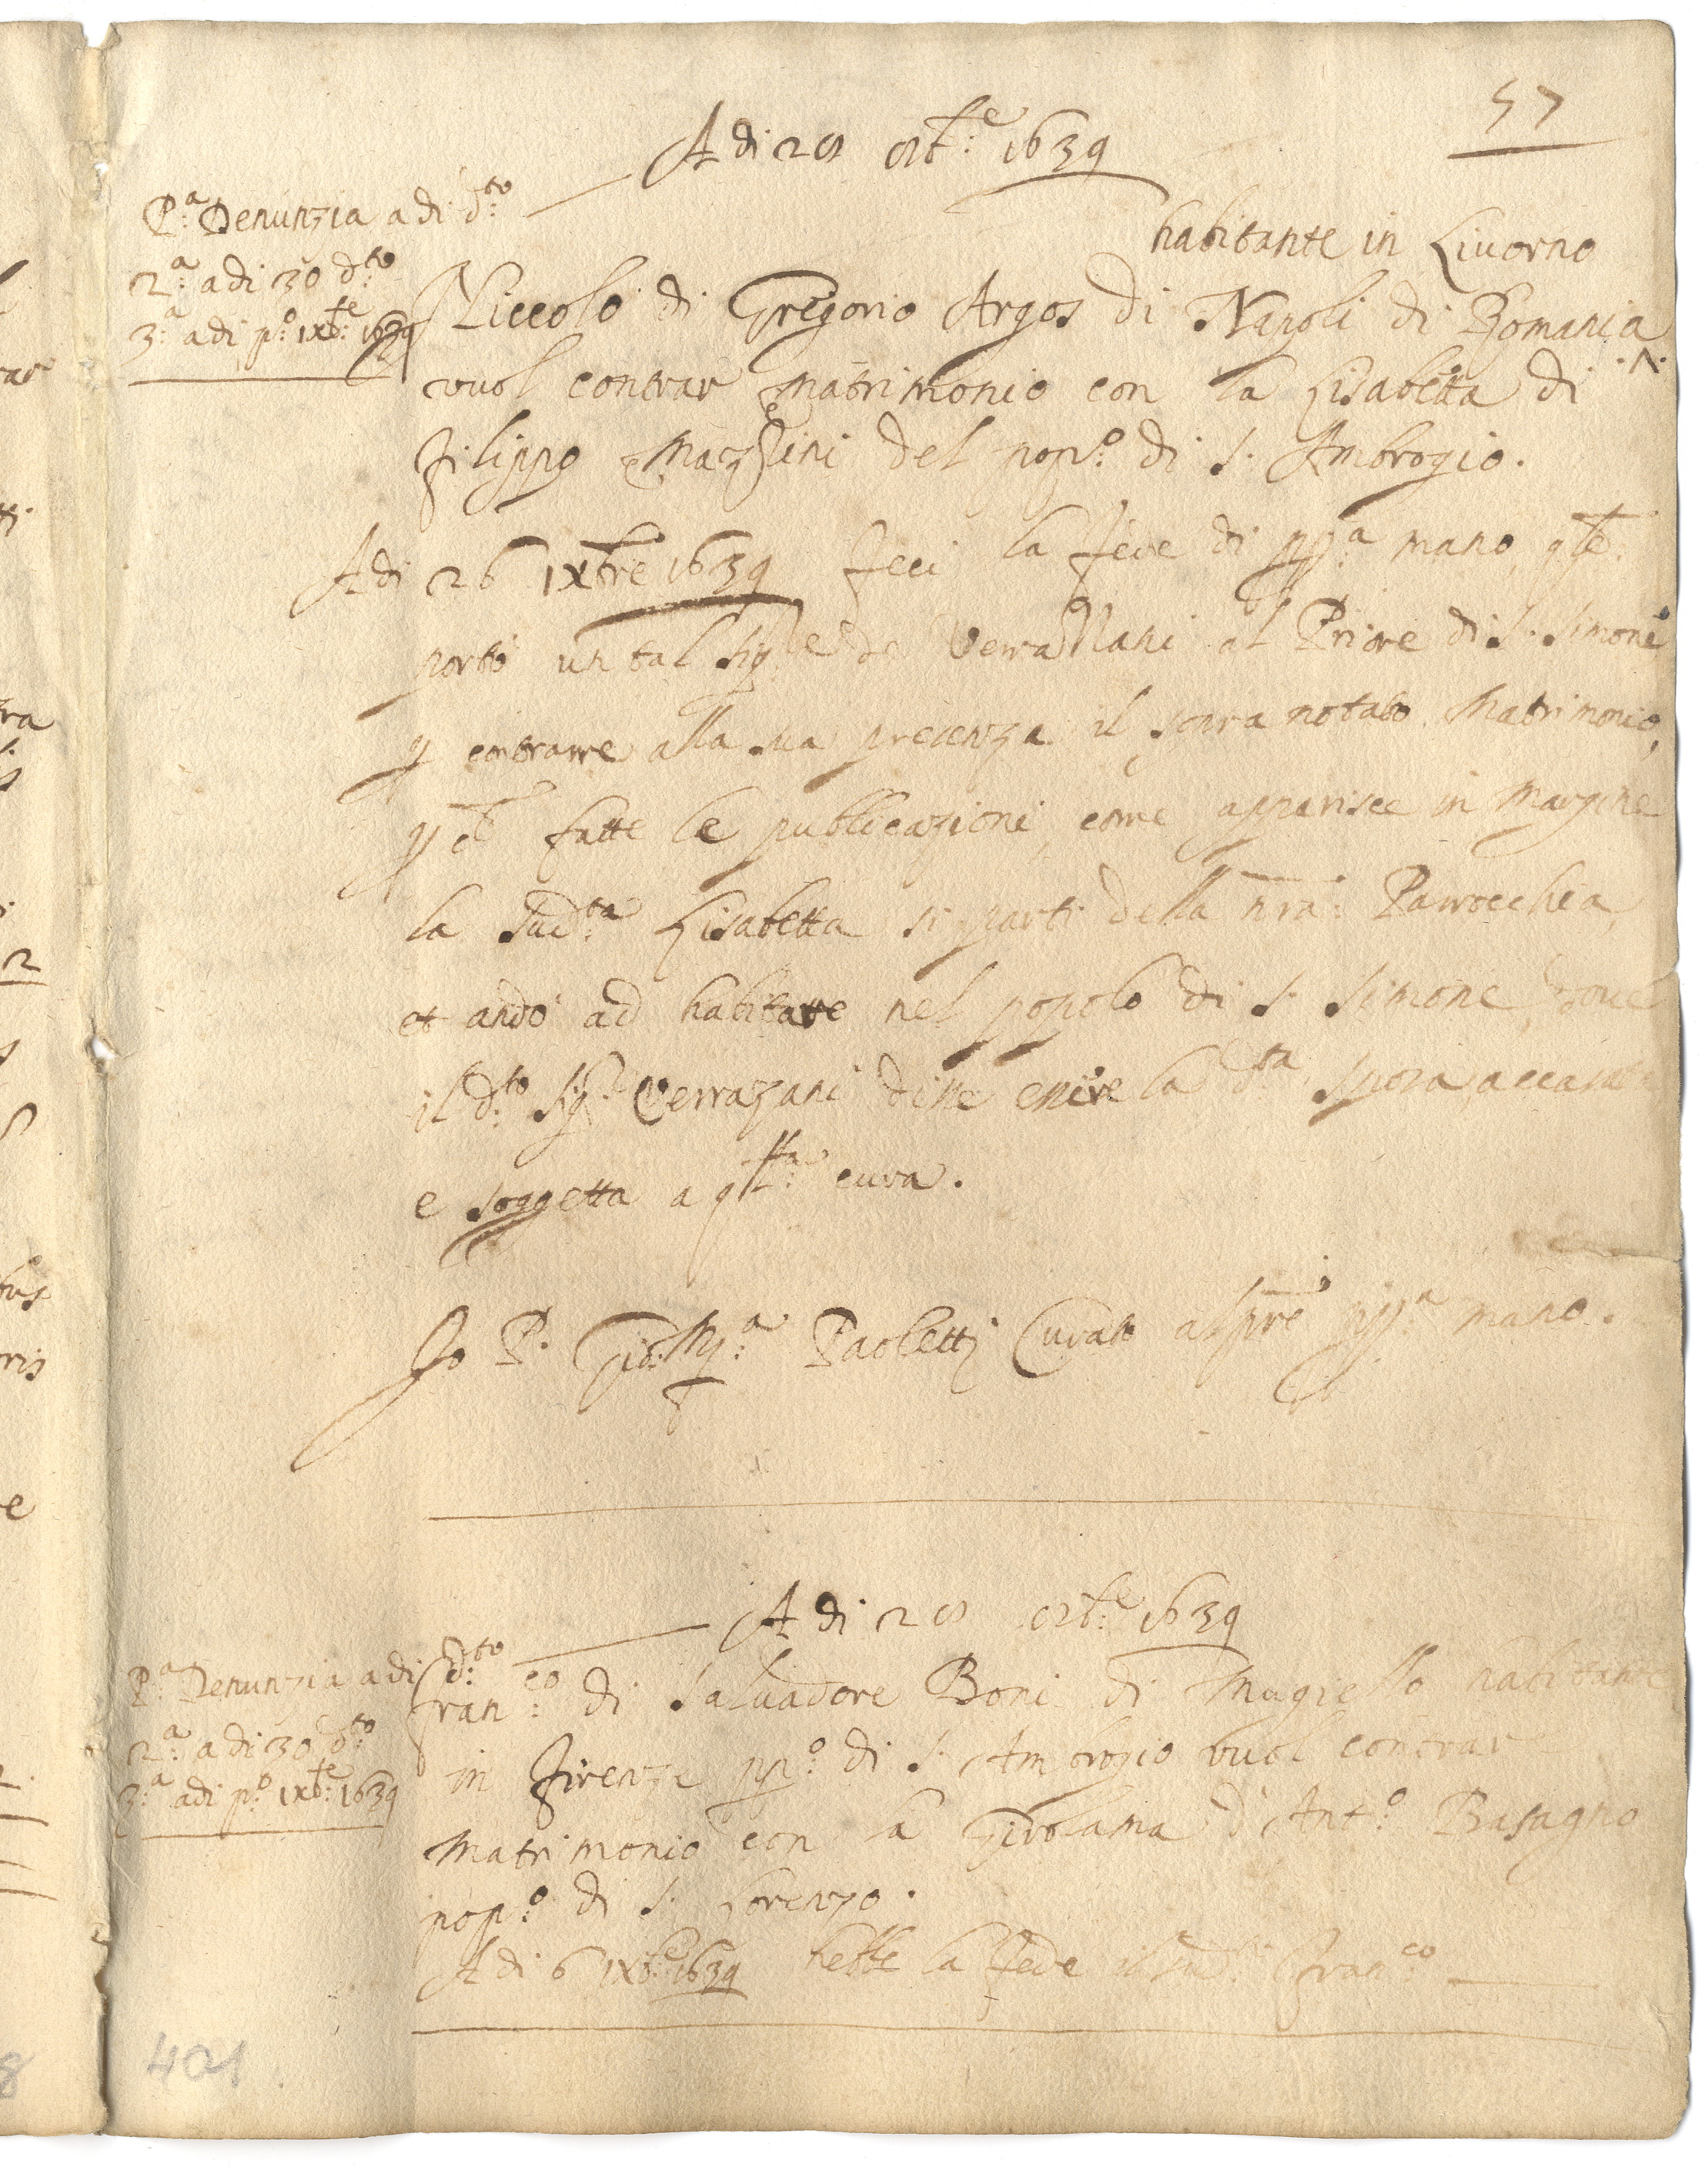 57
A di 28 8bre: 1639
P:a Denunzia a di d:to
2:a a di 30 d:to
3:a a di p:o 1Xbre: 1639
habitante in Liuorno
Niccolo di Gregorio Argos di Napoli di Romania .^.
vuol contrar matrimonio con la Lisabetta di
Filippo Mazzini del pop:o di S. Ambrogio.
Adi 26 1Xbre 1639 feci la fede di pp:a mano, qle
portò un tal Sig:re da Verrazzani al Priore di S. Simone
p contrarre alla sua presenza il sopra notato Matrimonio,
p che fatte le publicazioni, come apparisce in Margine
la sud:ta Lisabetta si partì della nra: Parrocchia,
et andò ad habitare nel popolo di S. Simone, doue
il d:to Sig:r Verrazani disse essere la d:ta sposa accasata
e soggetta a q:lla cura.
Io P. Gio: M:a Paoletti Curato al pnte pp:a mano.
A di 28 8bre: 1639
P:a Denunzia a di d:to
2:a a di 30 d:to
3:a a di p:o 1Xbre: 1639
Fran:co di Saluadore Boni di Mugello habitante
in Firenze pp:o di S. Ambrogio vuol contrar
Matrimonio con la Girolama d'Ant:o Basagno
pop:o di S. Lorenzo.
A di 6 1Xbre: 1639 hebbe la fede il sud:o Fran:co
401